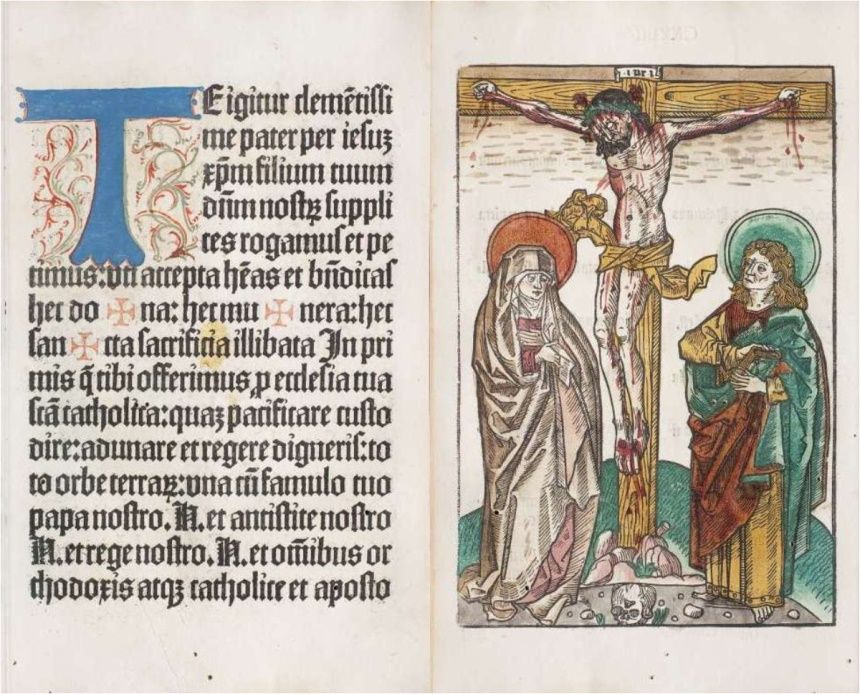 TEigitur clemētissi
me pater per iesuꝫ
xp̄m filium tuum
dn̄m nostrꝫ suppli
ces rogamus et pe
timus: vti accepta hēas et bn̄dicas
hec do ✠ na: hec mu ✠ nera: hec
san ✠ cta sacrificia illibata In pri
mis q̄ tibi offerimus ꝓ ecclesia tua
scā catholica: quaꝫ pacificare custo
dire: adunare et regere digneris: to
to orbe terraꝝ: vna cū famulo tuo
papa nostro. N. et antistite nostro
N. et rege nostro. N. et oībus or
thodoxis atqꝫ catholice et aposto